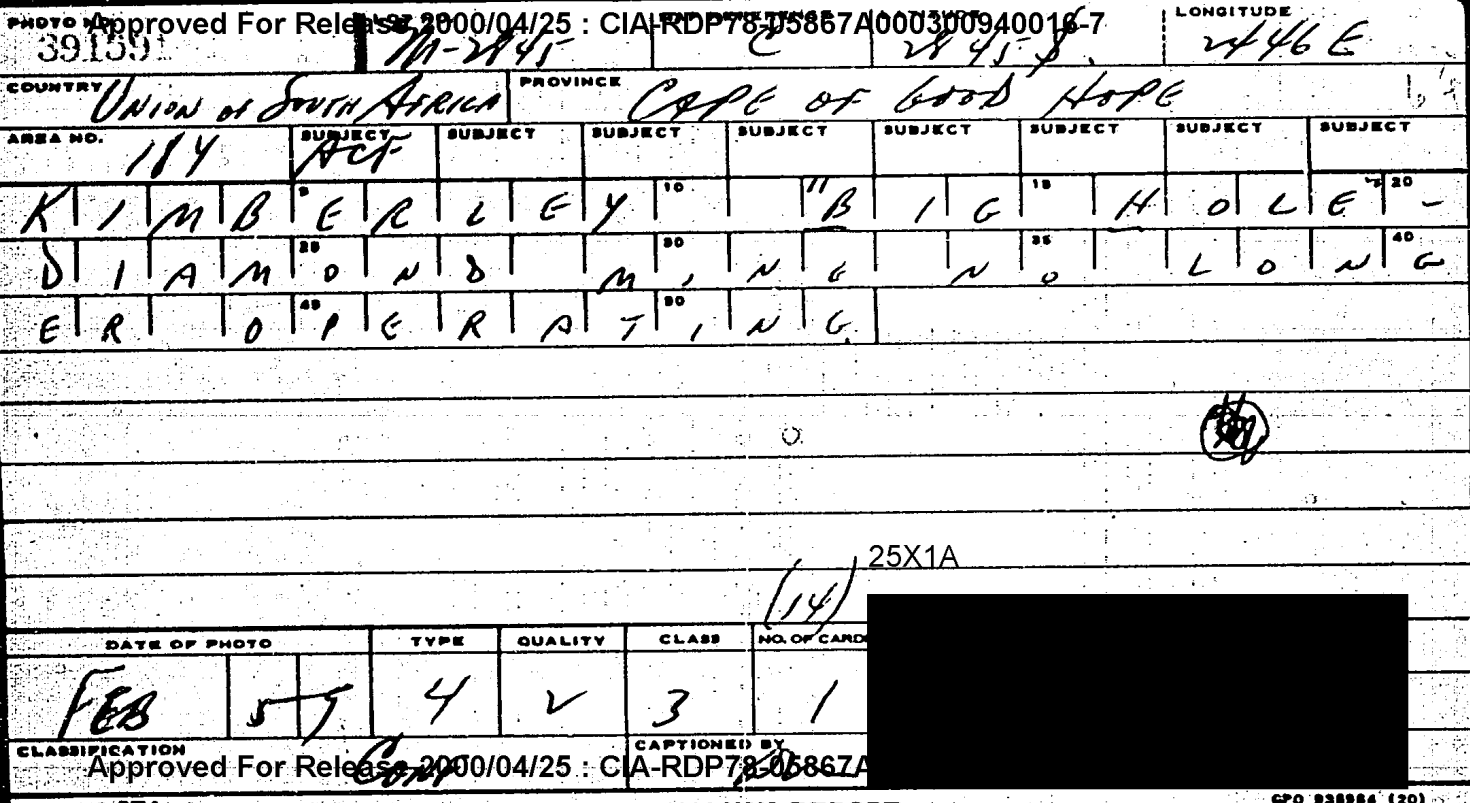 PHOTO NO. LATITUDE LONGITUDE
Approved For Release 2000/04/25 : CIA-RDP78-05867A000300940016-7
391591 M-2845 C 2845 S 2446 E
COUNTRY UNION OF SOUTH AFRICA PROVINCE CAPE OF GOOD HOPE
AREA NO. 184 SUBJECT SUBJECT SUBJECT SUBJECT SUBJECT SUBJECT SUBJECT SUBJECT
KIMBERLEY 10 11 BIG 15 HOLE 20 -
DIAM 25 OND M 30 ING N 35 O LON 40 G
ER O 45 PERAT 50 ING
25X1A
(14)
DATE OF PHOTO TYPE QUALITY CLASS NO. OF CARD
FEB 59 4 2 3 1
CLASSIFICATION Conf CAPTIONED BY
Approved For Release 2000/04/25 : CIA-RDP78-05867A
GPO 938984 (20)